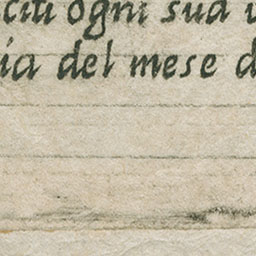 citi ogni sua
ia del mese d